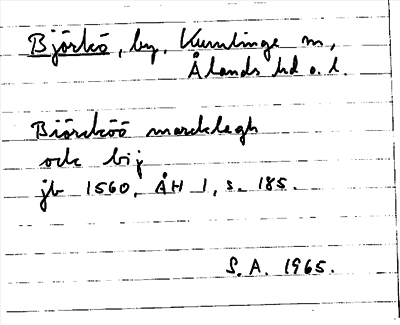 Björkö, by, Kumlinge sn,
Ålands hd o. l.
Biörcköö marcklagh
och bij
jb 1560, ÅH 1, s. 185.
S. A. 1965.